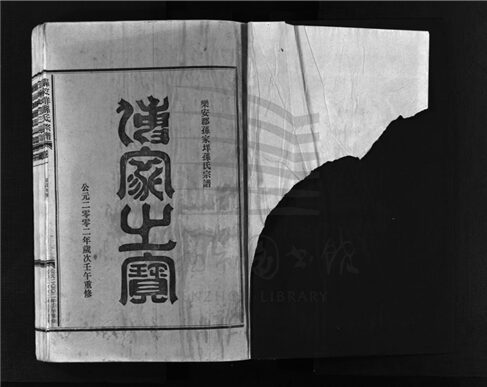 樂安郡孫家垟孫氏宗譜
傳家之寶
公元二零零二年歲次壬午重修
LIBRARY